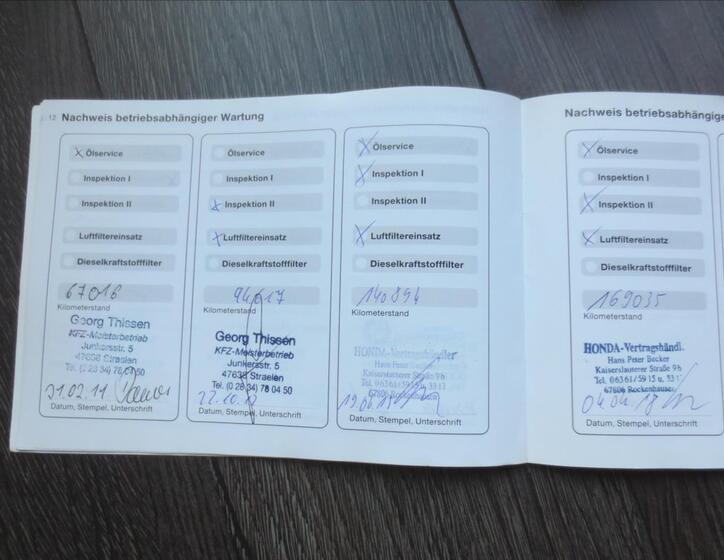 12 Nachweis betriebsabhängiger Wartung
X Ölservice
Inspektion I
Inspektion II
Luftfiltereinsatz
Dieselkraftstofffilter
67016
Kilometerstand
Georg Thissen
KFZ-Meisterbetrieb
Junkersstr. 5
47638 Straelen
Tel. (0 28 34) 78 04 50
Datum, Stempel, Unterschrift
Ölservice
Inspektion I
X Inspektion II
X Luftfiltereinsatz
Dieselkraftstofffilter
Kilometerstand
Georg Thissen
KFZ-Meisterbetrieb
Junkersstr. 5
47638 Straelen
Tel. (0 28 34) 78 04 50
Datum, Stempel, Unterschrift
X Ölservice
X Inspektion I
Inspektion II
X Luftfiltereinsatz
Dieselkraftstofffilter
140894
Kilometerstand
HONDA-Vertragshändler
Hans Peter Becker
Kaiserslauterer Straße 96
Datum, Stempel, Unterschrift
Nachweis betriebsabhängige
X Ölservice
Inspektion I
X Inspektion II
X Luftfiltereinsatz
Dieselkraftstofffilter
169035
Kilometerstand
HONDA-Vertragshändl.
Hans Peter Becker
Kaiserslauterer Straße 96
Tel. 06361/59 15 u.
67806 Rockenhausen
Datum, Stempel, Unterschrift